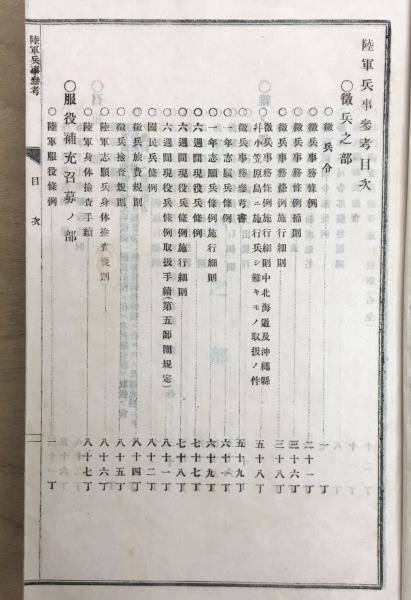 陸軍兵事參考目次
○徵兵之部
○徵兵令 一丁
○徵兵事務條例 二十一丁
○徵兵事務條例補則 三十六丁
○徵兵事務條例施行細則 三十八丁
○徵兵事務條例施行細則中北海道及沖繩縣
幷小笠原島ニ施行兵シ難キモノ取扱ノ件 五十八丁
○徵兵事務參考書 五十九丁
○一年志願兵條例 六十一丁
○一年志願兵條例施行細則 六十九丁
○六週間現役兵條例 七十七丁
○六週間現役兵條例施行細則 七十八丁
○六週間現役兵條例取扱手續(第五師團規定) 八十一丁
○國民兵條例 八十二丁
○徵兵旅費規則 八十四丁
○徵兵檢査規則 八十五丁
○陸軍志願兵身体檢査規則 八十六丁
○陸軍身体檢査手續 八十七丁
○服役補充召募ノ部
○陸軍服役條例 一丁
陸軍兵事參考
目次
一